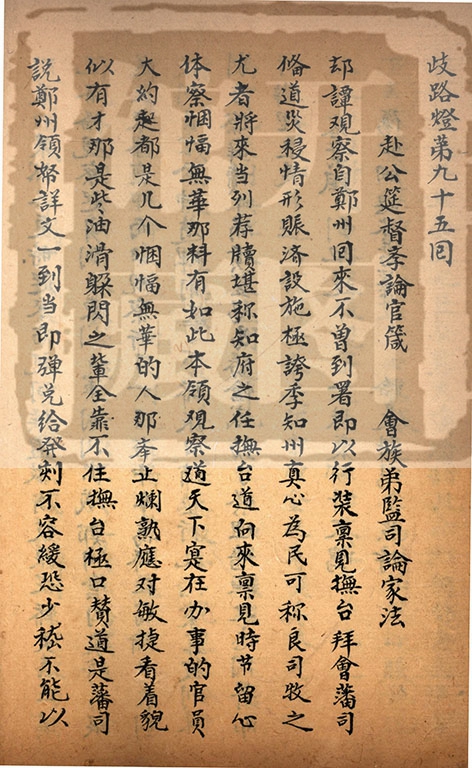 歧路燈第九十五回
赴公筵督孝論官箴　會族弟監司論家法
却譚观察自鄭州回來不曾到署即以行装禀見撫台拜會藩司
俻道災祲情形賑济設施極誇季知州真心為民可称良司牧之
尤者將來当列荐牘堪称知府之任撫台道向來禀見時节留心
体察悃愊無華那料有如此本領观察道天下寔在办事的官員
大約起都是几介悃愊無華的人那夲止爛熟應对敏捷看着貌
似有才那是些油滑躱閃之輩全靠不住撫台極口赞道是藩司
說鄭州領帑詳文一到当即弹兑給發刻不容緩恐少稽不能以